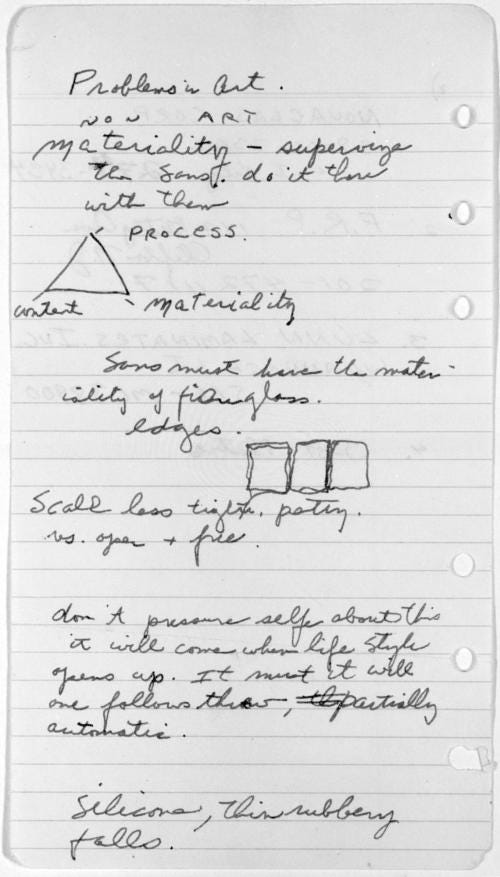 Problems in Art.
NON ART
materiality – supervize
the Sans. do it there
with them
PROCESS.
content
materiality
Sans must have the mater-
iality of fiberglass.
edges.
Scale less tight, petty.
vs. open + free.
don't pressure self about this
it will come when life style
opens up. It must it will
one follows
partially
automatic.
Silicone, thin rubbery
falls.